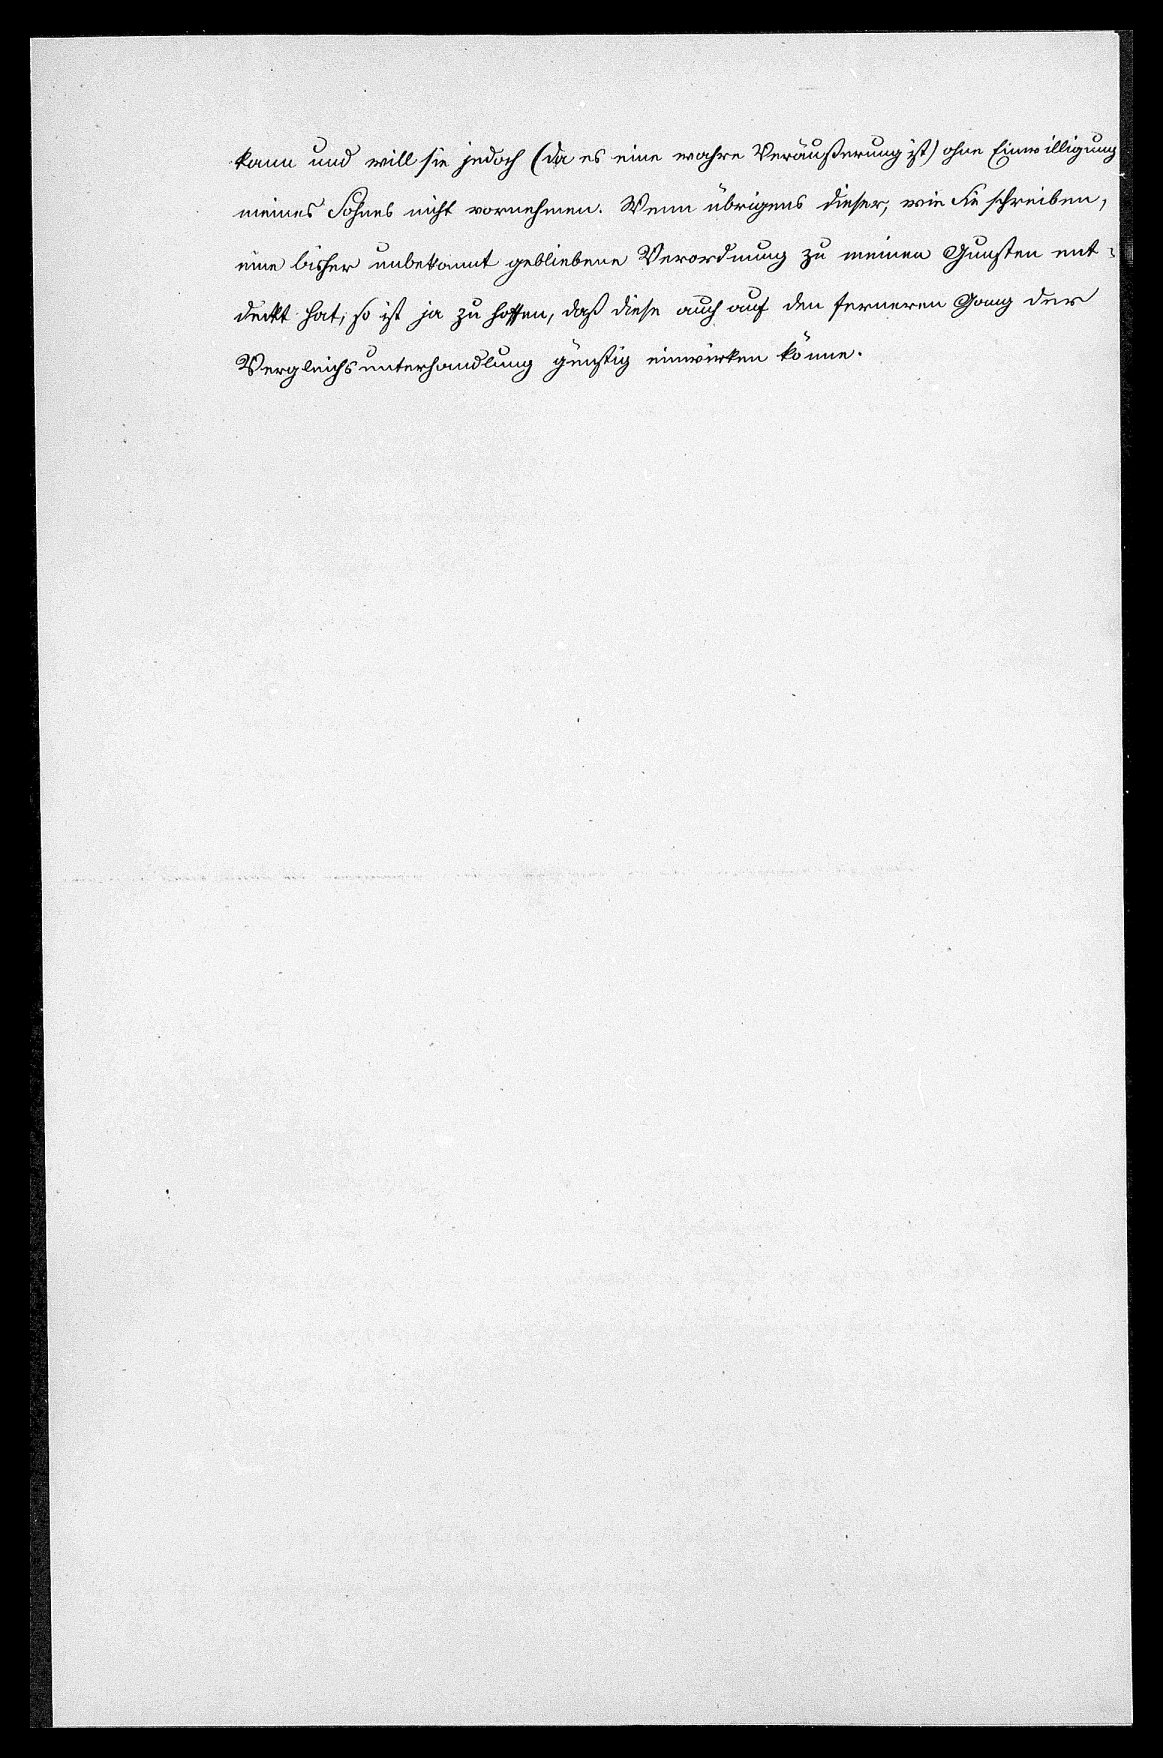 kann und will sie jedoch (da es eine wahre Veräußerung ist) ohne Einwilligung
meines Sohnes nicht vornehmen. Wenn übrigens dieser, wie Sie schreiben,
eine bisher unbekannt gebliebene Verordnung zu meinen Gunsten ent-
deckt hat, so ist ja zu hoffen, daß diese auch auf den ferneren Gang der
Vergleichsunterhandlung günstig einwirken könne.